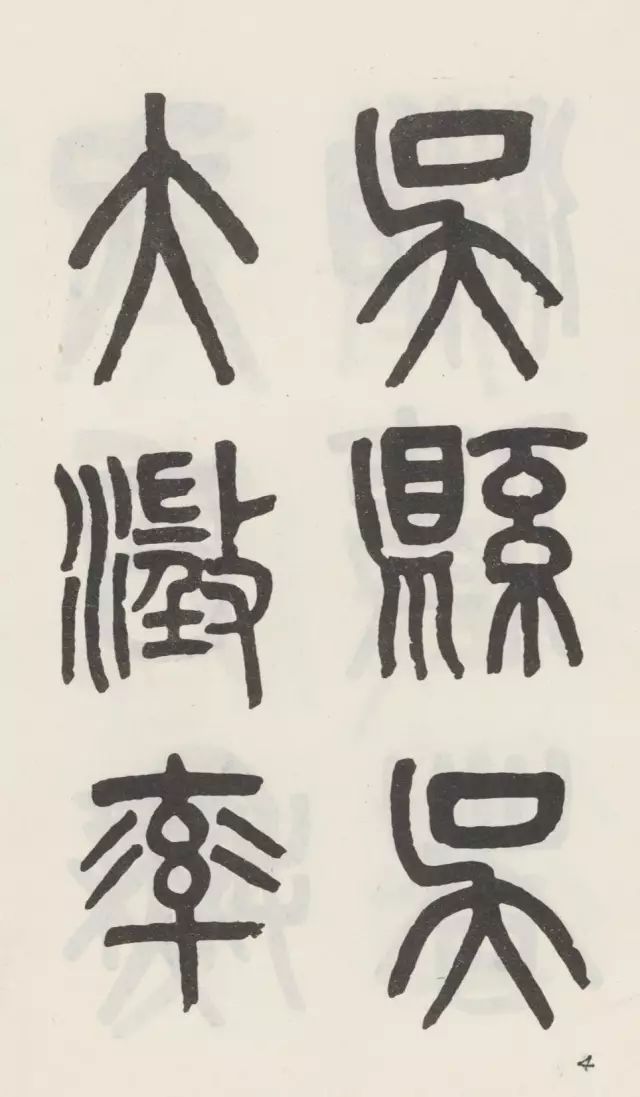 吳縣吳
大澂率
4